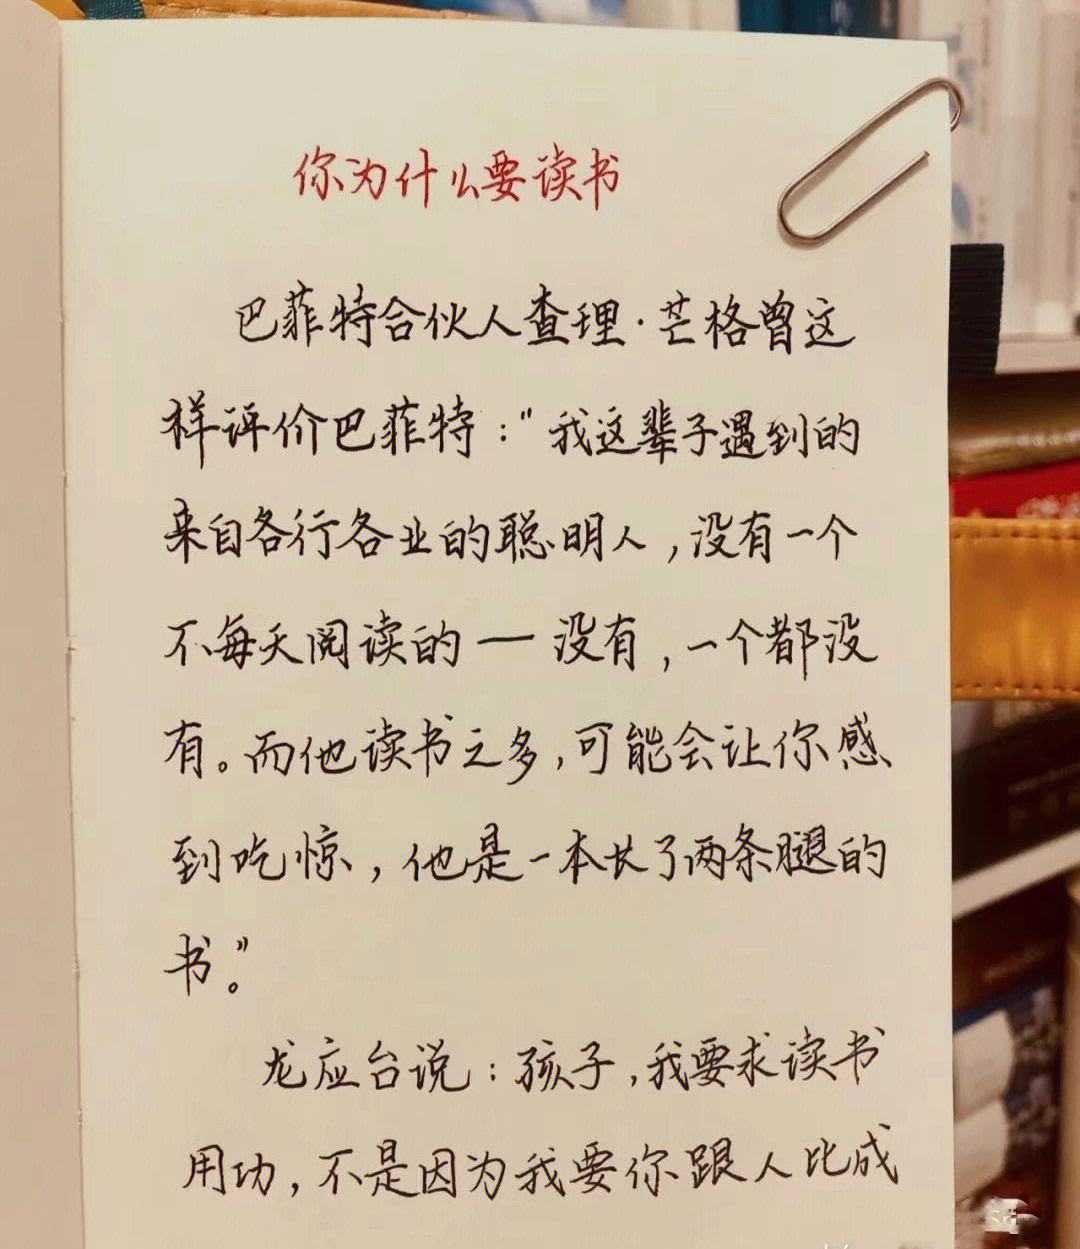 你为什么要读书
巴菲特合伙人查理·芒格曾这
样评价巴菲特："我这辈子遇到的
来自各行各业的聪明人,没有一个
不每天阅读的一没有,一个都没
有。而他读书之多,可能会让你感
到吃惊,他是一本长了两条腿的
书。"
龙应台说:孩子,我要求读书
用功,不是因为我要你跟人比成